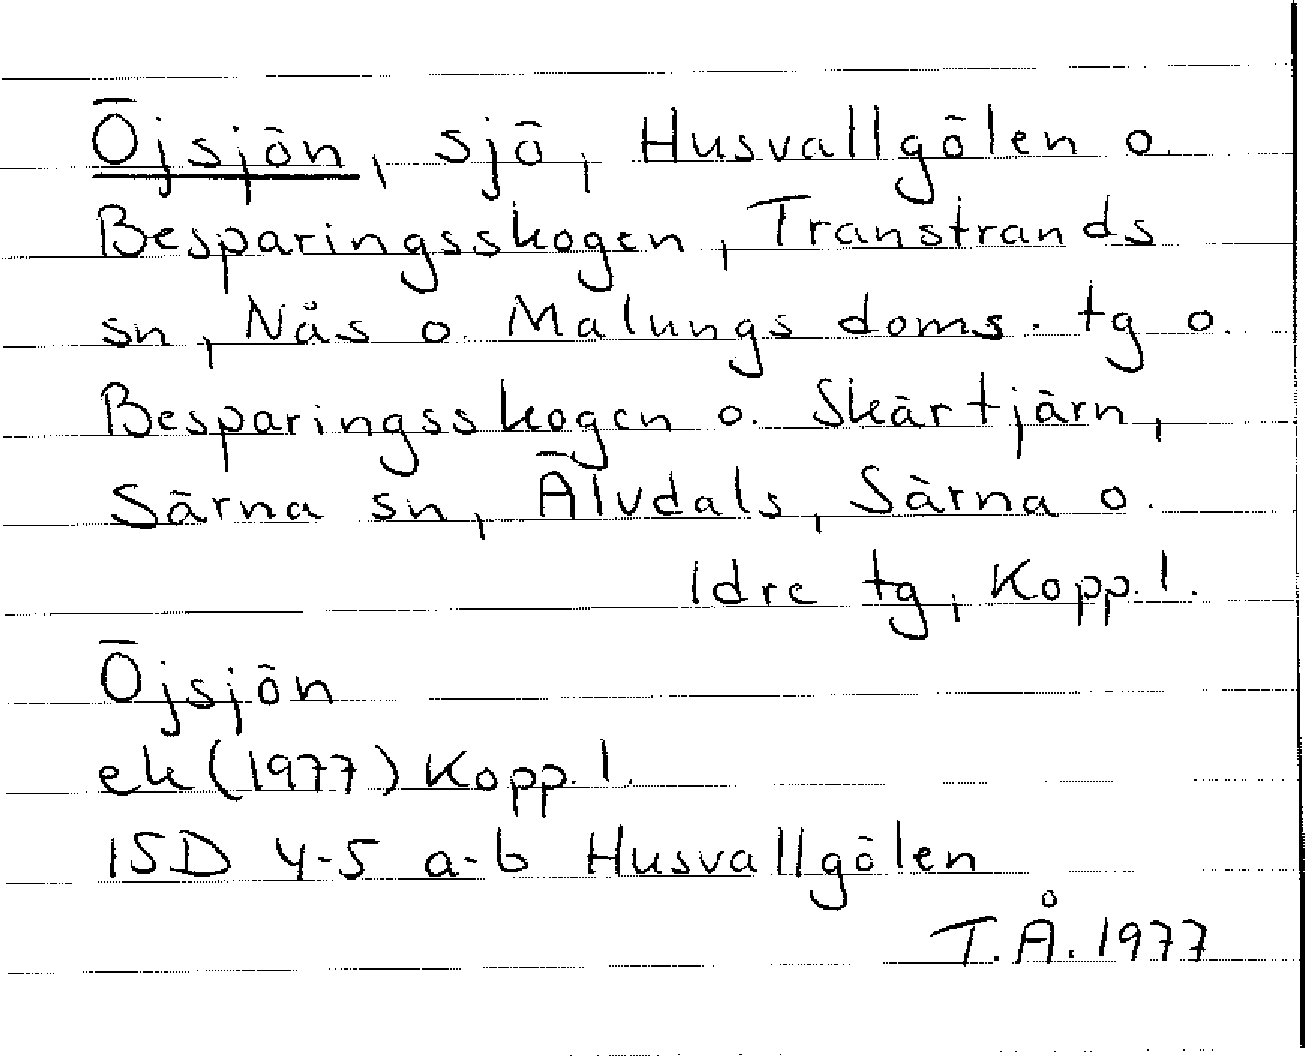 Öjsjön, sjö, Husvallgölen o.
Besparingsskogen, Transtrands
sn, Nås o. Malungs doms. tg o.
Besparingsskogen o. Skärtjärn,
Särna sn, Älvdals, Särna o.
Idre tg, Kopp. l.
Öjsjön
ek (1977) Kopp. l.
15D 4-5 a-b Husvallgölen
T.Å. 1977